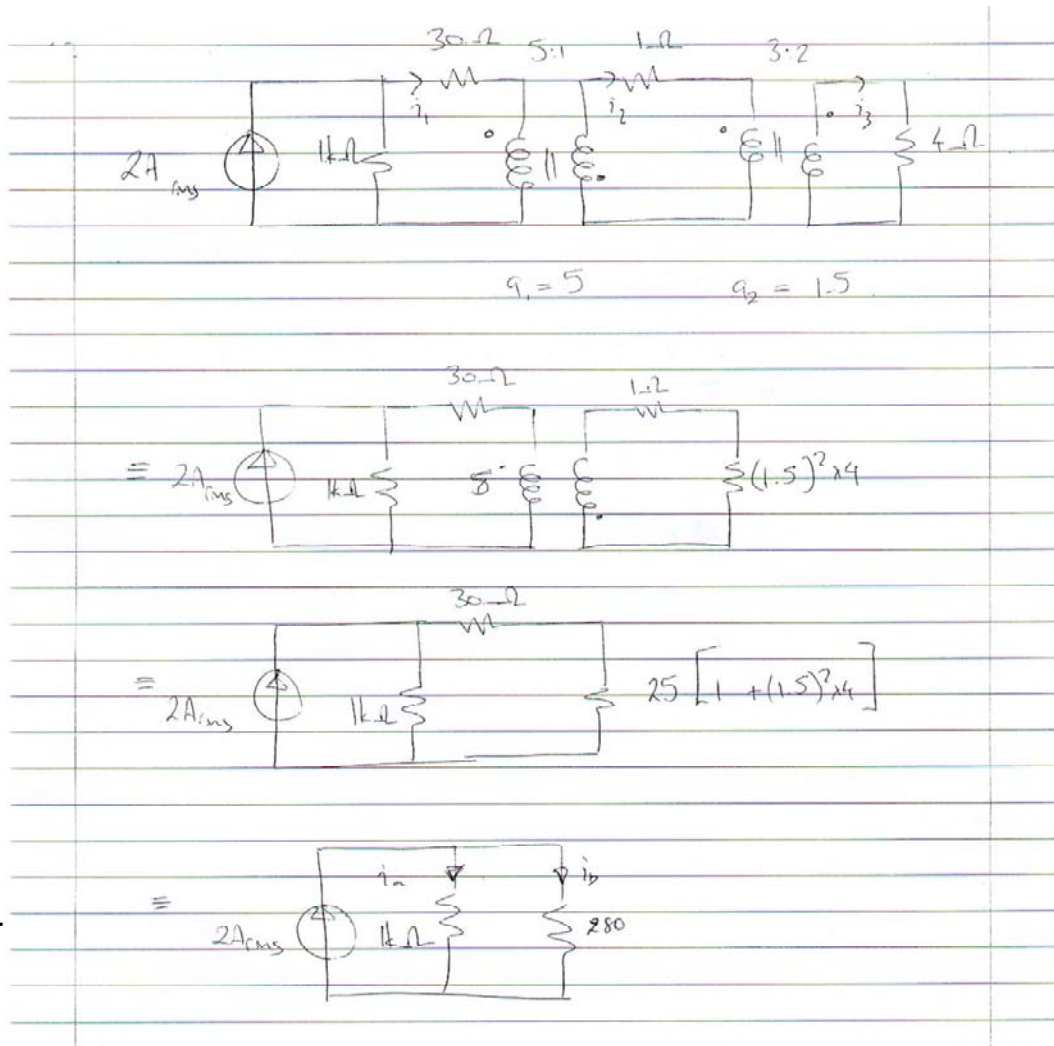 30Ω 5:1 1Ω 3:2
i₁ i₂ i₃
2A rms 1kΩ 4Ω
a₁ = 5 a₂ = 1.5
30Ω 1Ω
≡ 2A rms 1kΩ (1.5)²×4
30Ω
≡ 2A rms 1kΩ 25 [1 + (1.5)²×4]
iₐ i_b
≡ 2A rms 1kΩ 280